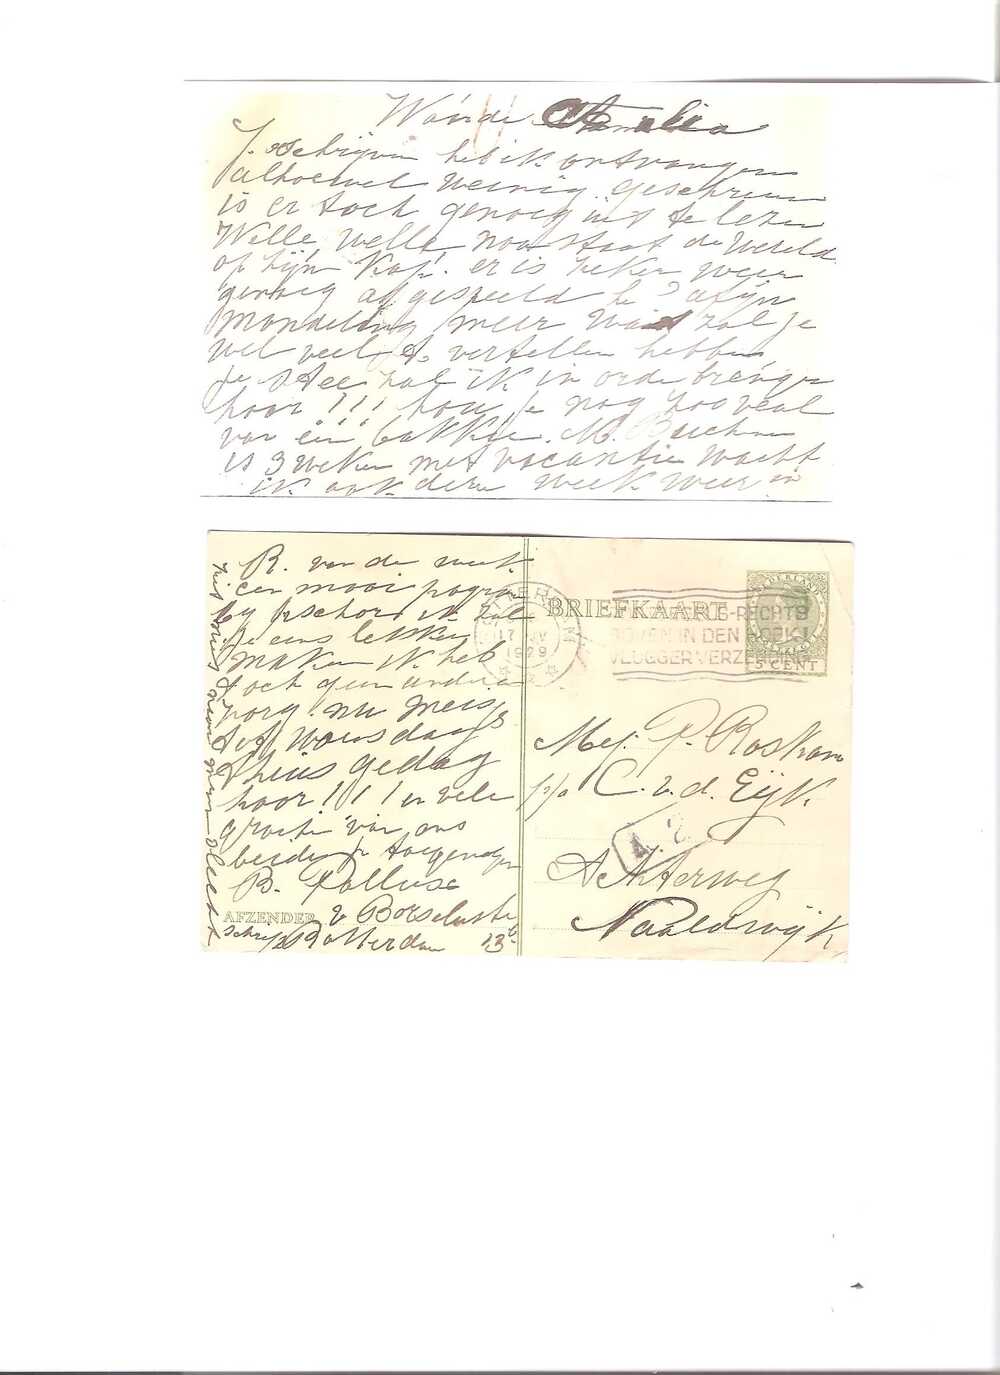 Waarde Amalia
J. schrijven heb ik ontvangen
alhoewel weinig geschreven
is er toch genoeg uit te lezen
Welle welle nou staat de wereld
op zijn kop. er is zeker weer
genoeg afgespeeld he? afijn
mondeling meer want zal je
wel veel te vertellen hebben
je stee zal ik in orde brengen
hoor!!! hou je nog zooveel
van één bakkie. M.
is 3 weken met vacantie wacht
ik ook deze week weer in
R. van de week
een mooi
bij ik zal
je eens lekker
maken ik heb
toch geen andere
zorg. nu meisje
tot woensdag
thuis gedag
hoor!!! en vele
groeten van ons
beide je toegenegen
B.
AFZENDER v Borselestr
Rotterdam 13b
BRIEFKAART
NEDERLAND
5 CENT
17 IV
1929
RECHTS
BOVEN IN DEN HOEK!
VLUGGER VERZENDING
Mej. P. Roskam
p/a C. v. d. Eijk
Achterweg
Naaldwijk